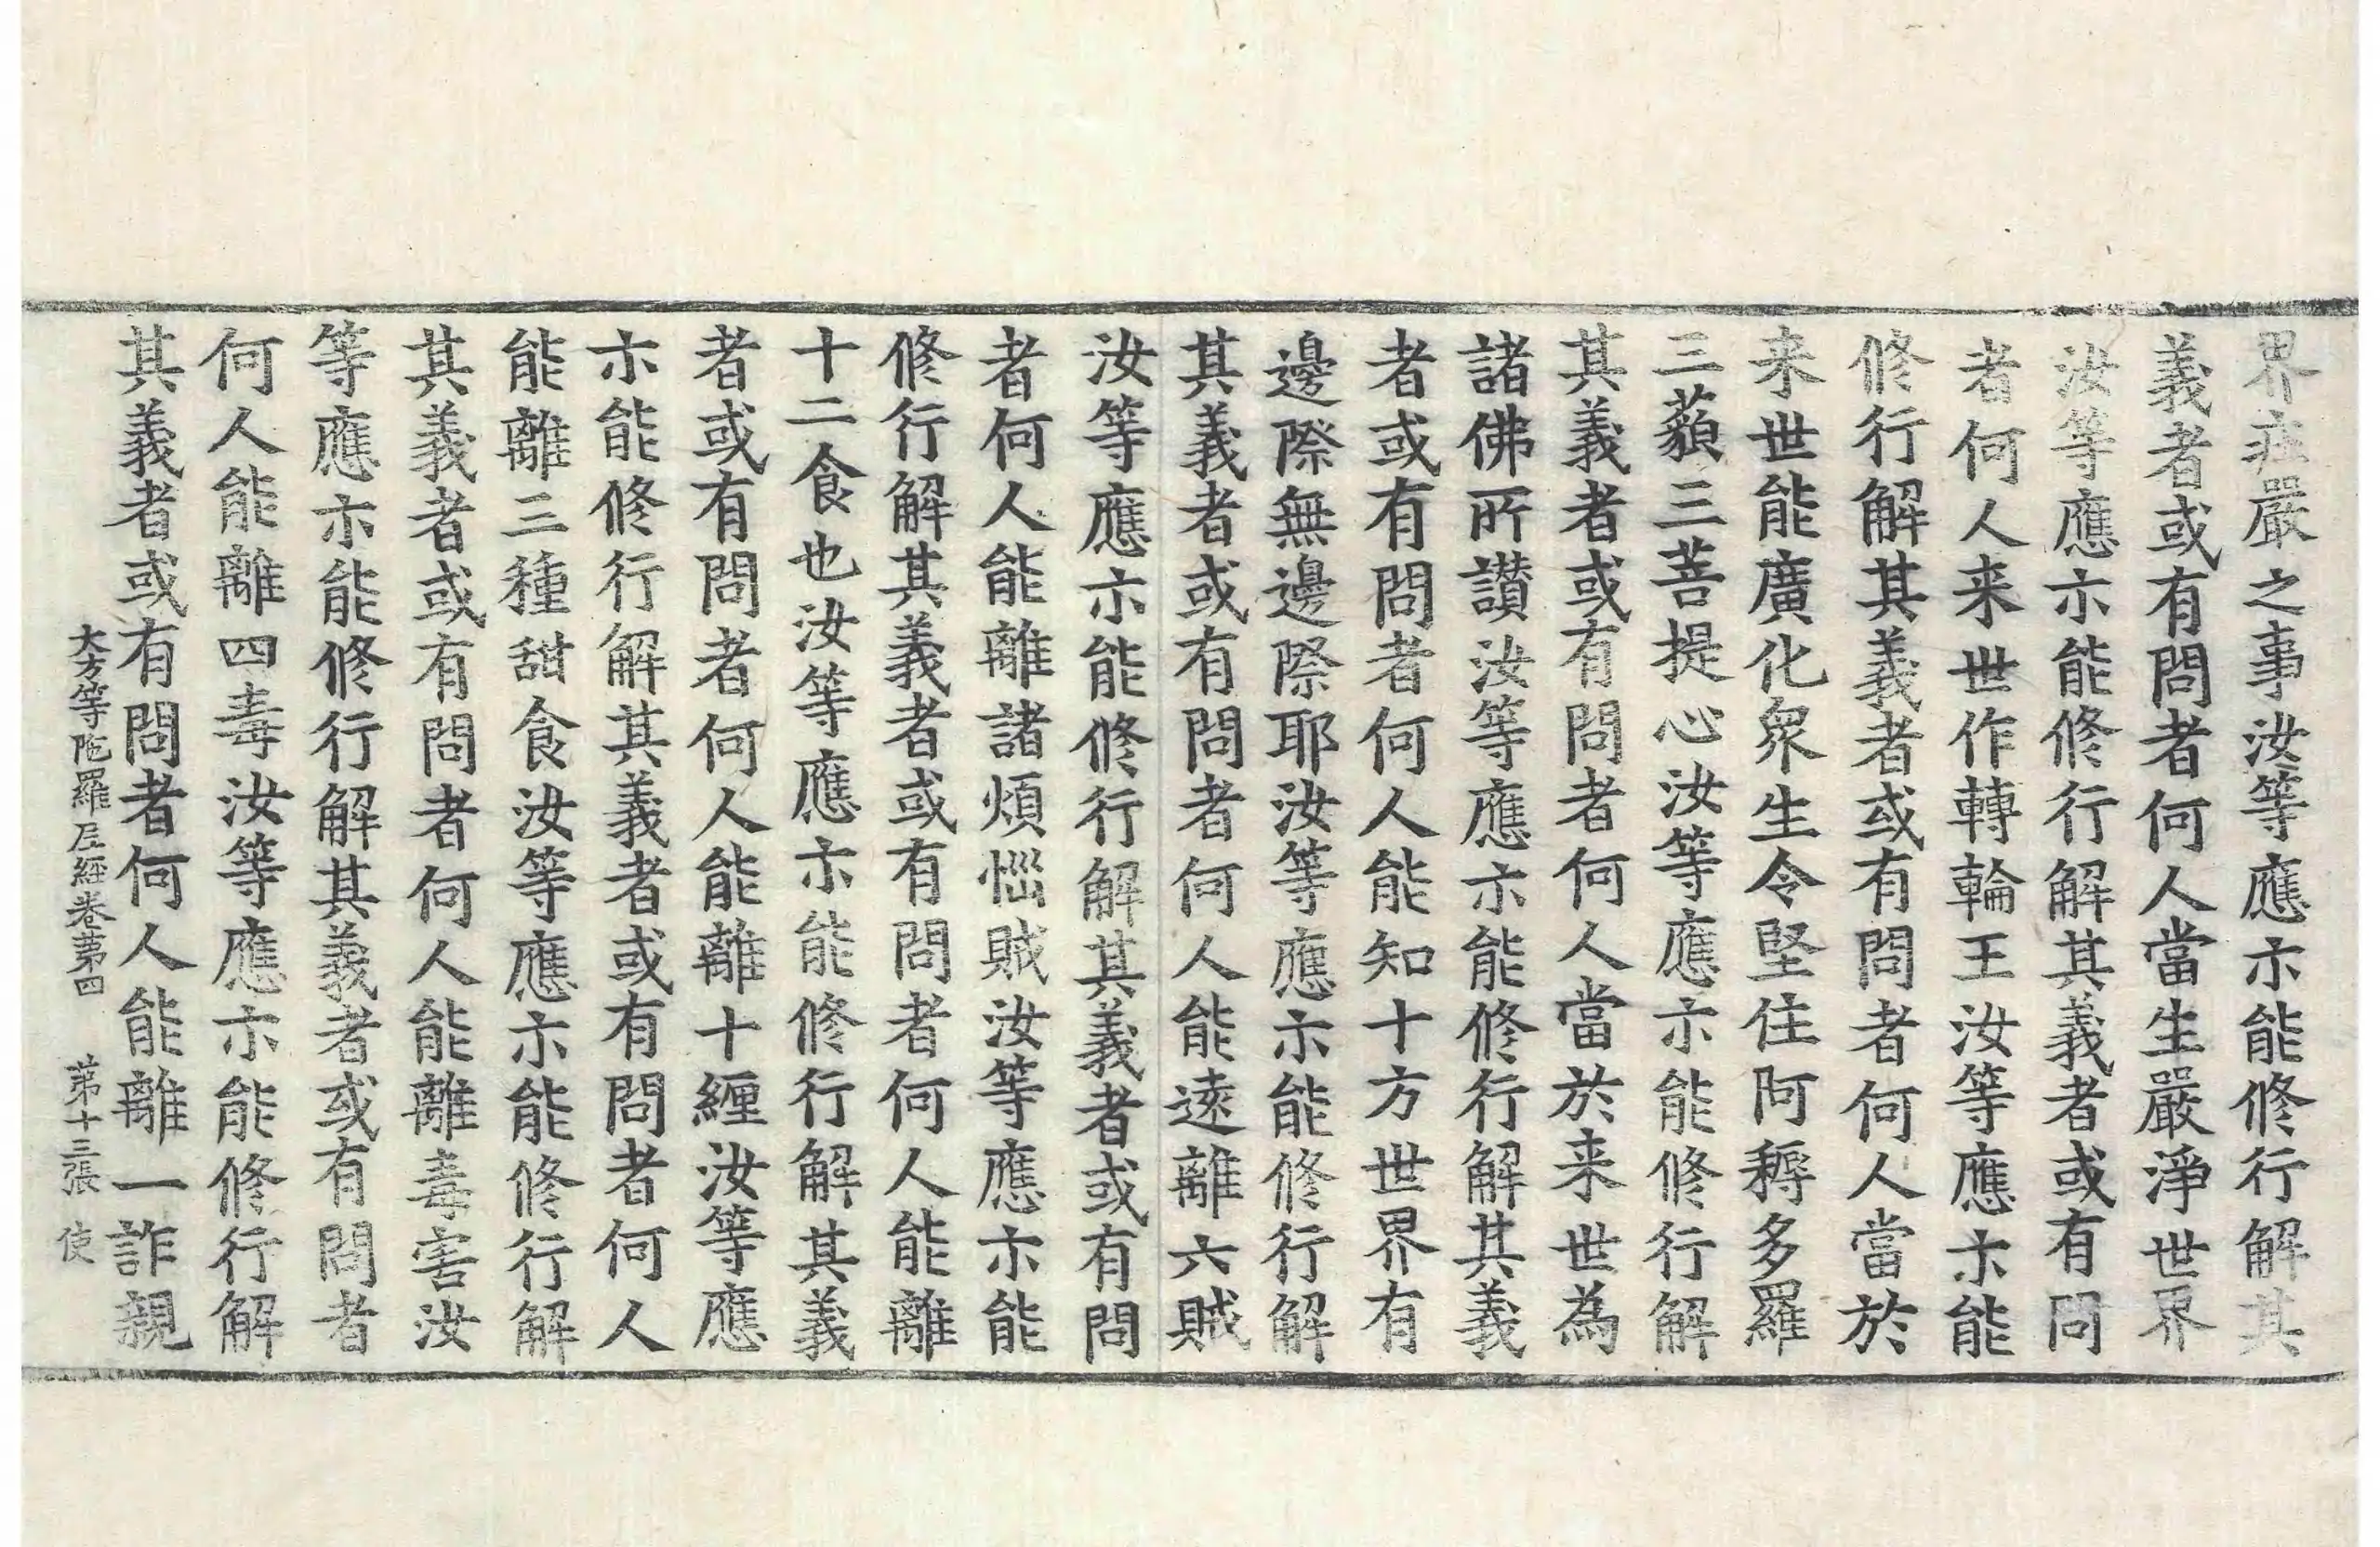 界庄嚴之事汝等應亦能修行解其
義者或有問者何人當生嚴淨世界
汝等應亦能修行解其義者或有問
者何人来世作轉輪王汝等應亦能
修行解其義者或有問者何人當於
来世能廣化衆生令堅住阿耨多羅
三藐三菩提心汝等應亦能修行解
其義者或有問者何人當於来世為
諸佛所讃汝等應亦能修行解其義
者或有問者何人能知十方世界有
邊際無邊際耶汝等應亦能修行解
其義者或有問者何人能遠離六賊
汝等應亦能修行解其義者或有問
者何人能離諸煩惱賊汝等應亦能
修行解其義者或有問者何人能離
十二食也汝等應亦能修行解其義
者或有問者何人能離十纏汝等應
亦能修行解其義者或有問者何人
能離三種甜食汝等應亦能修行解
其義者或有問者何人能離毒害汝
等應亦能修行解其義者或有問者
何人能離四毒汝等應亦能修行解
其義者或有問者何人能離一詐親
大方等陁羅尼經卷苐四 苐十三張 使